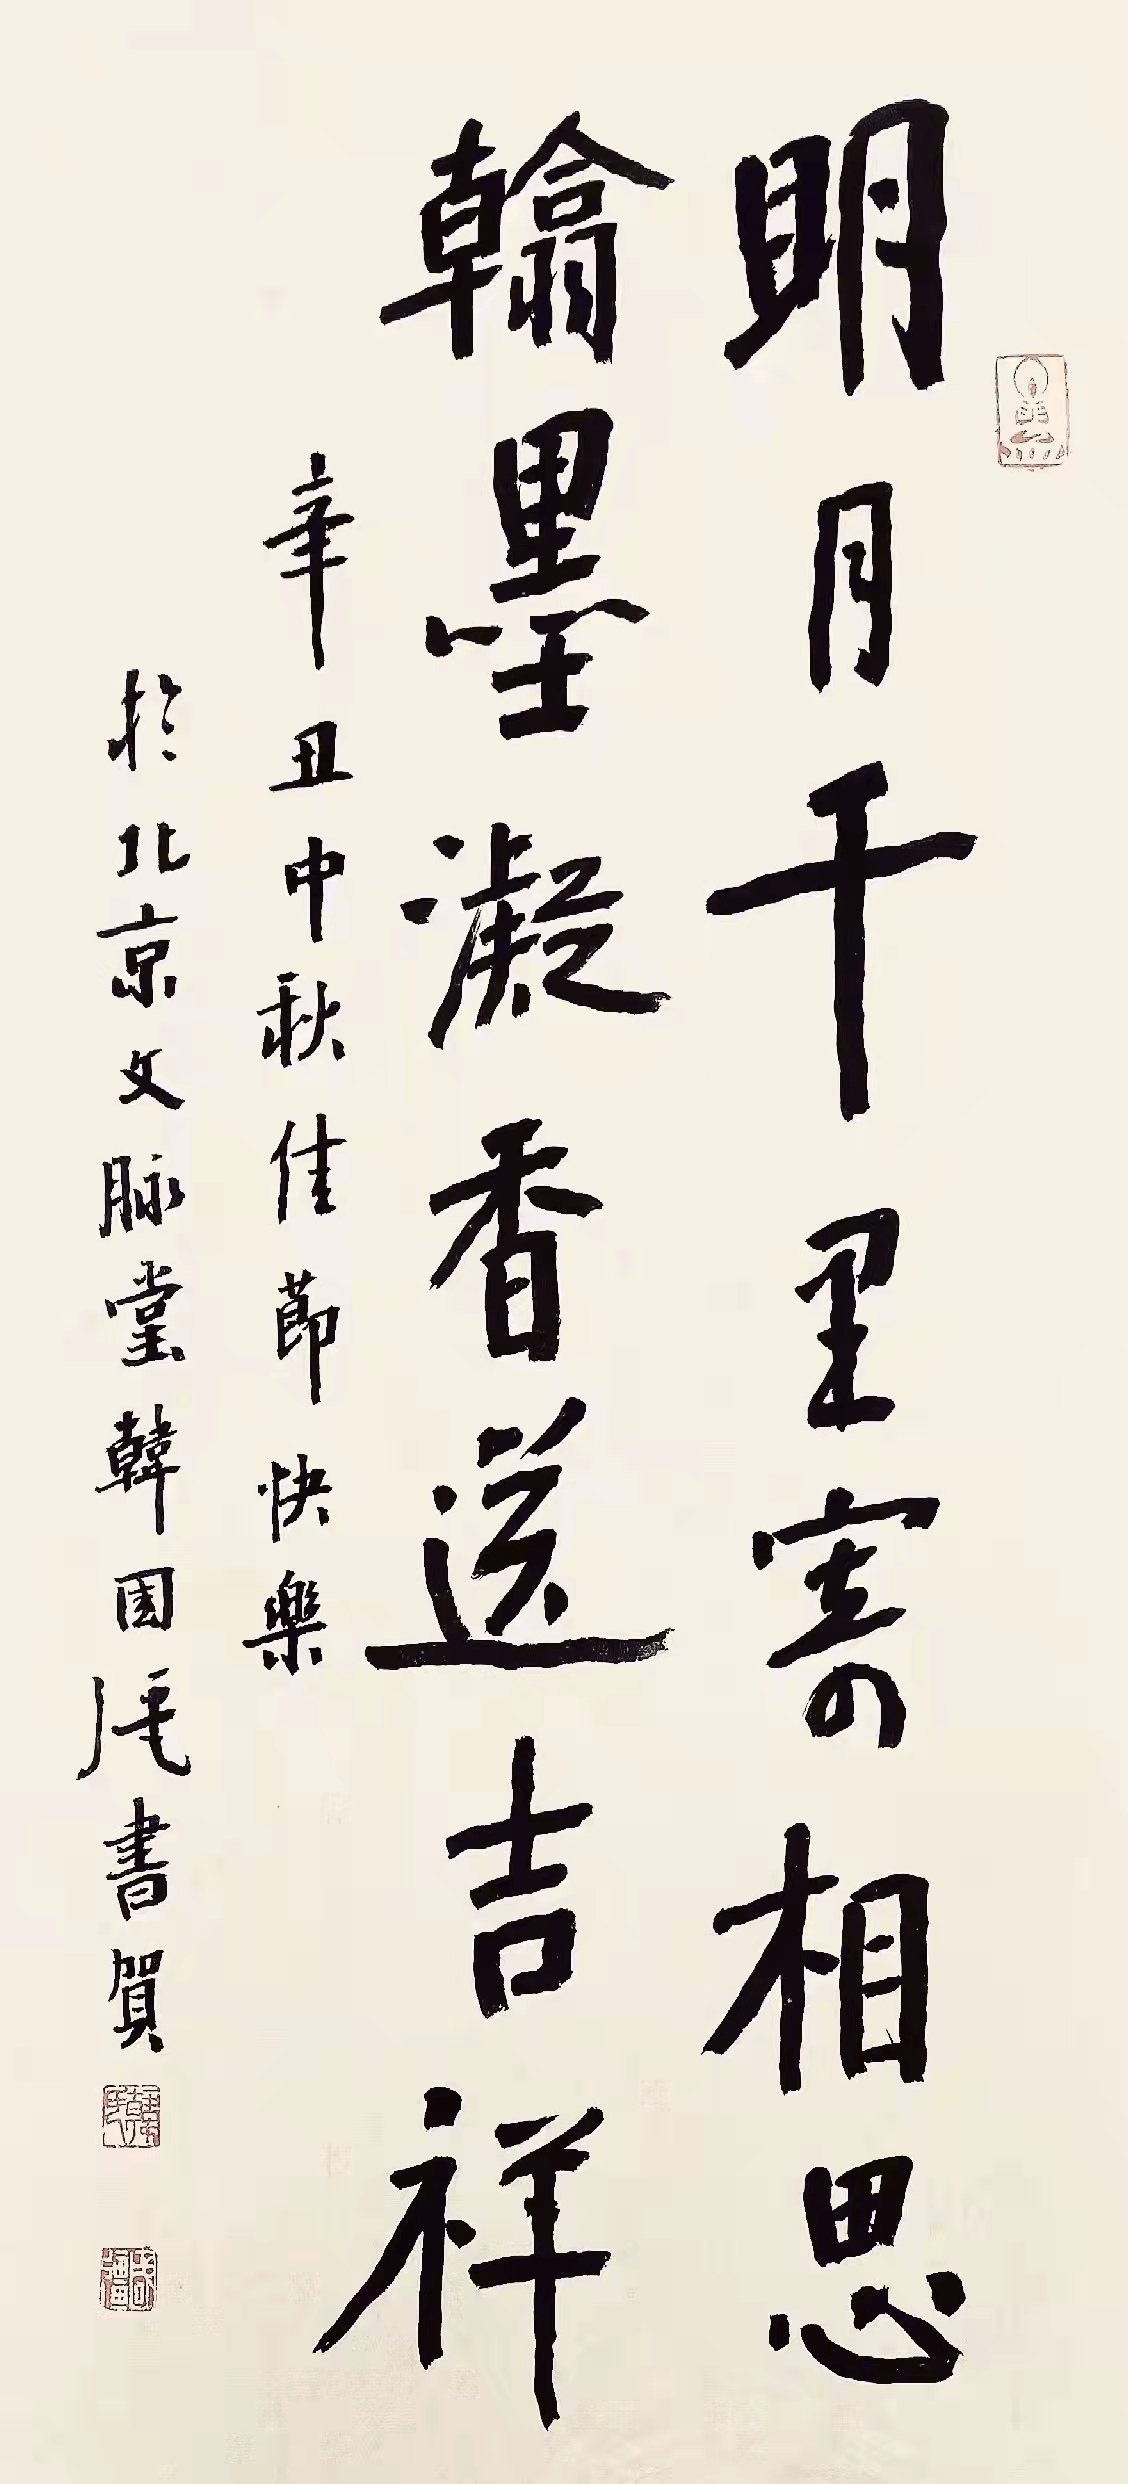 明月千里寄相思
翰墨凝香送吉祥
辛丑中秋佳節快樂
於北京文脉堂韓国書賀